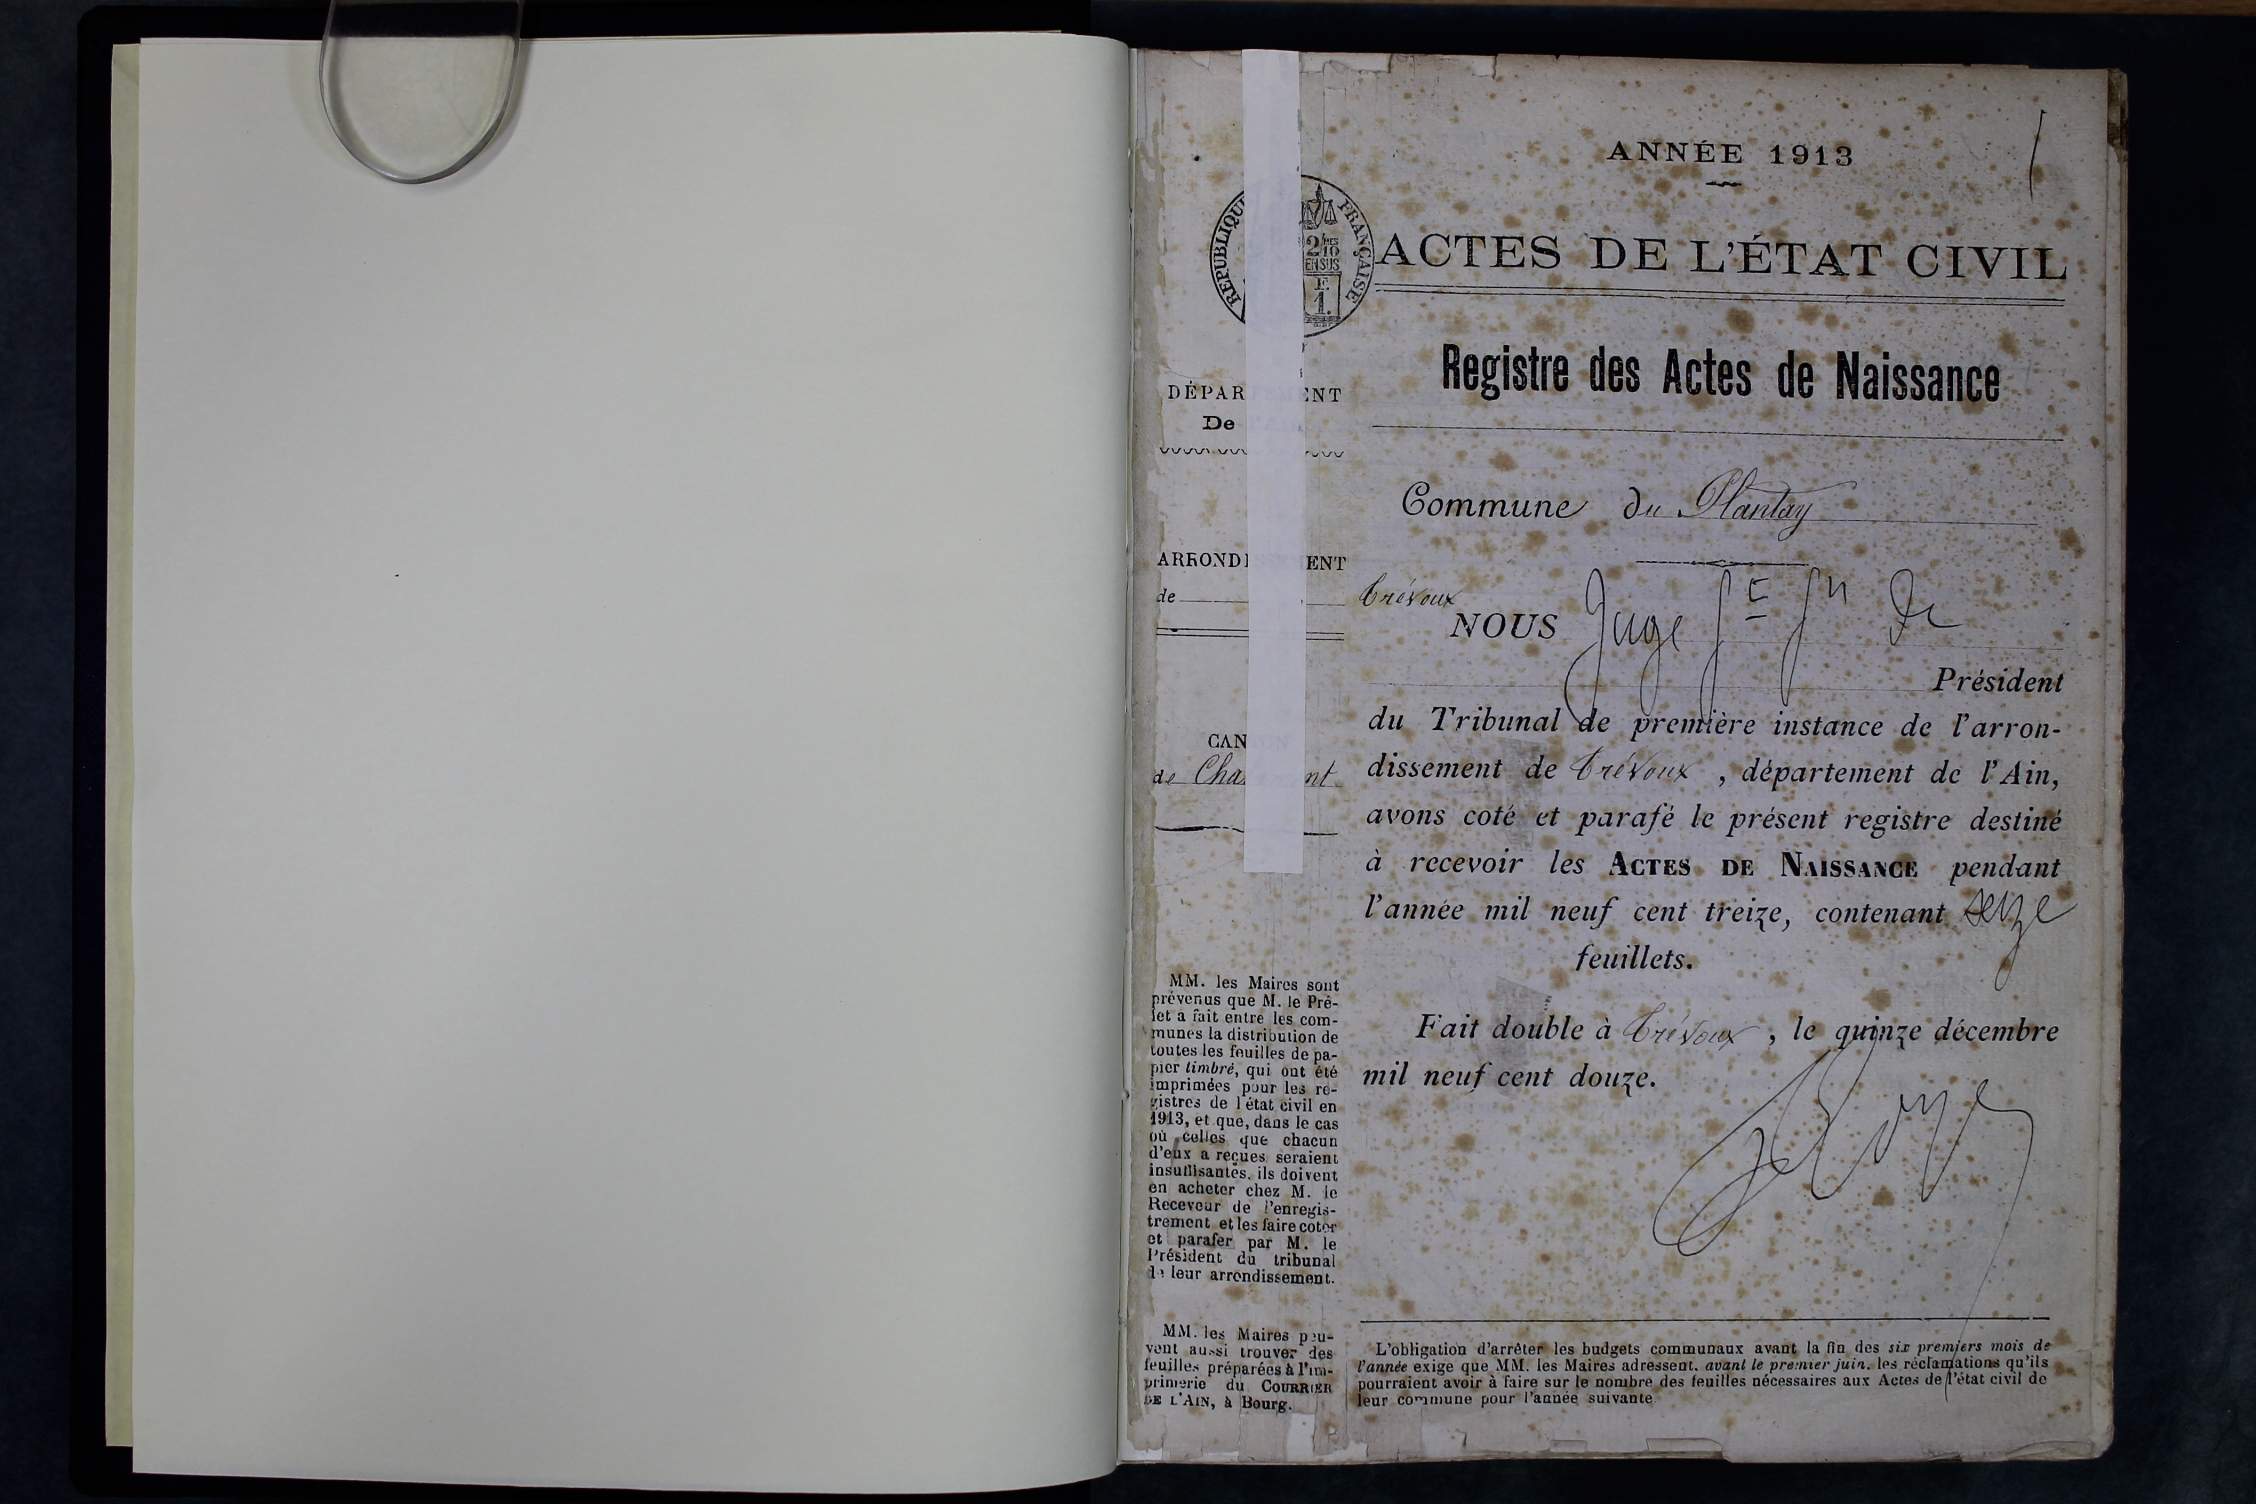 ANNÉE 1913
RÉPUBLIQUE FRANÇAISE
2/10 MES
EN SUS
F.
1.
ACTES DE L'ÉTAT CIVIL
Registre des Actes de Naissance
DÉPAR ENT
De
Commune du Plantay
ARRONDI ENT
de Trévoux
CAN
de Cha nt
NOUS Juge
de
Président
du Tribunal de première instance de l'arron-
dissement de Trévoux, département de l'Ain,
avons coté et parafé le présent registre destiné
à recevoir les ACTES DE NAISSANCE pendant
l'année mil neuf cent treize, contenant seize
feuillets.
Fait double à Trévoux, le quinze décembre
mil neuf cent douze.
MM. les Maires sont
prévenus que M. le Pré-
fet a fait entre les com-
munes la distribution de
toutes les feuilles de pa-
pier timbré, qui ont été
imprimées pour les re-
gistres de l'état civil en
1913, et que, dans le cas
où celles que chacun
d'eux a reçues seraient
insuffisantes, ils doivent
en acheter chez M. le
Receveur de l'enregis-
trement et les faire coter
et parafer par M. le
Président du tribunal
de leur arrondissement.
MM. les Maires peu-
vent aussi trouver des
feuilles préparées à l'im-
primerie du COURRIER
DE L'AIN, à Bourg.
L'obligation d'arrêter les budgets communaux avant la fin des six premiers mois de
l'année exige que MM. les Maires adressent, avant le premier juin, les réclamations qu'ils
pourraient avoir à faire sur le nombre des feuilles nécessaires aux Actes de l'état civil de
leur commune pour l'année suivante